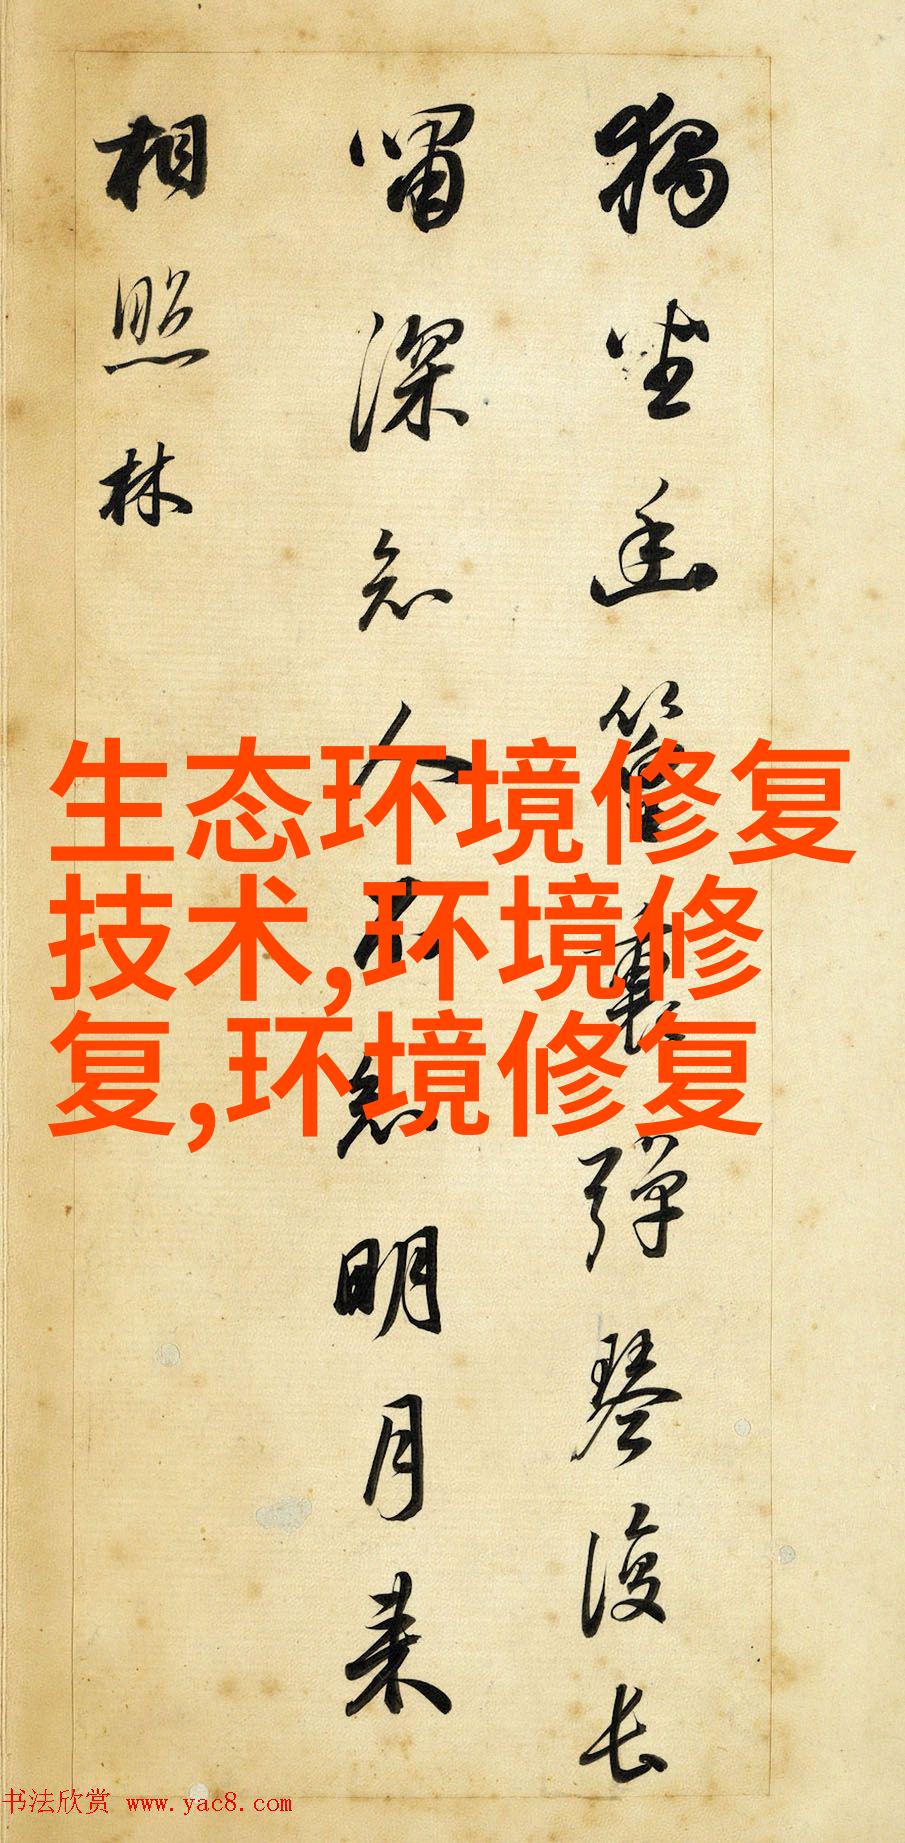 獨坐幽篁裏彈琴復長
嘯深知人不知明月来
相照林
生态环境修复
技术,环境修
复,环境修复
书法欣赏 www.yac8.com